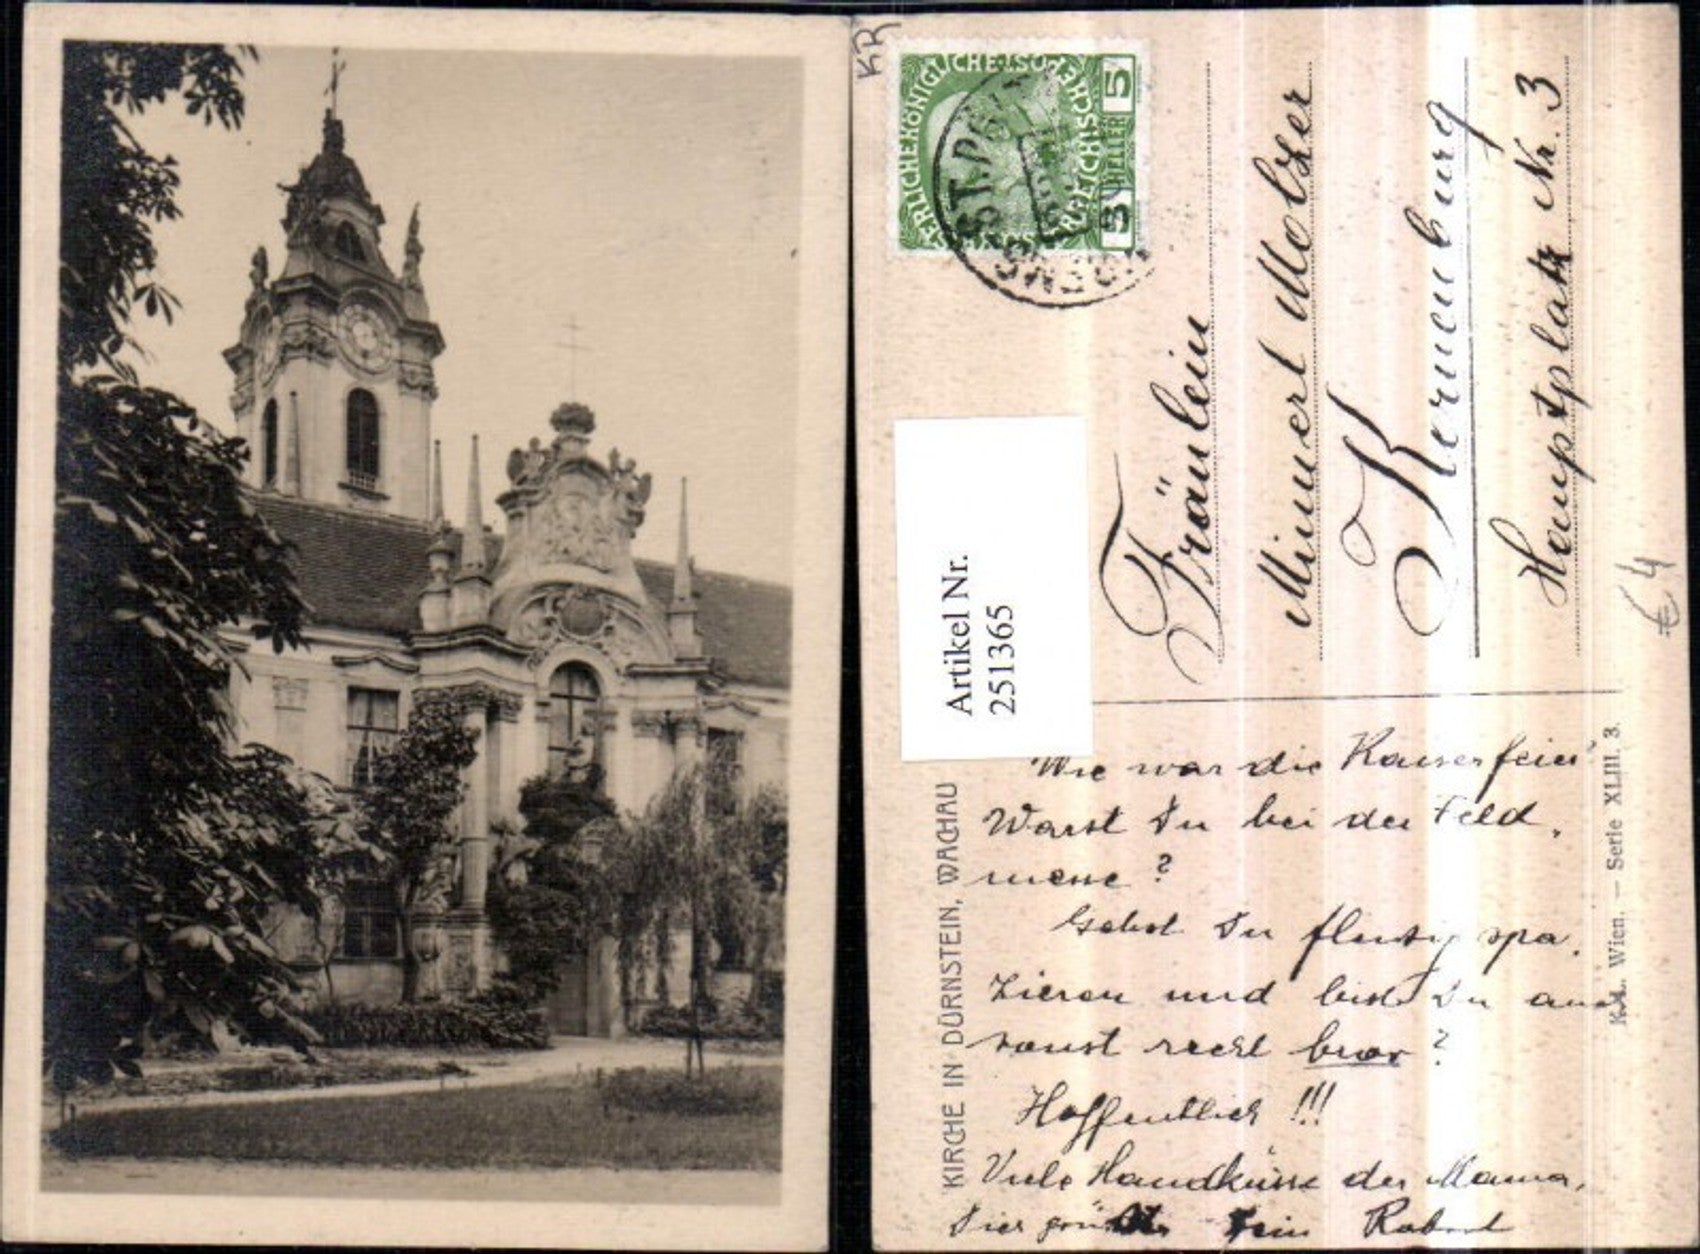 KR
5 HELLER 5
ST. PÖ
Artikel Nr.
251365
Fräulein
Minnerl Molzer
Korneuburg
Hauptplatz Nr. 3
€ 4
KIRCHE IN DÜRNSTEIN, WACHAU
Wie war die Kaiserfeier?
Warst Du bei der Feld-
messe?
Gehst Du fleissig spa-
zieren und bist Du auch
sonst recht brav?
Hoffentlich !!!
Viele Handküsse der Mama,
Dich grüsst Dein Robert
K. L. Wien. — Serie XLIII. 3.